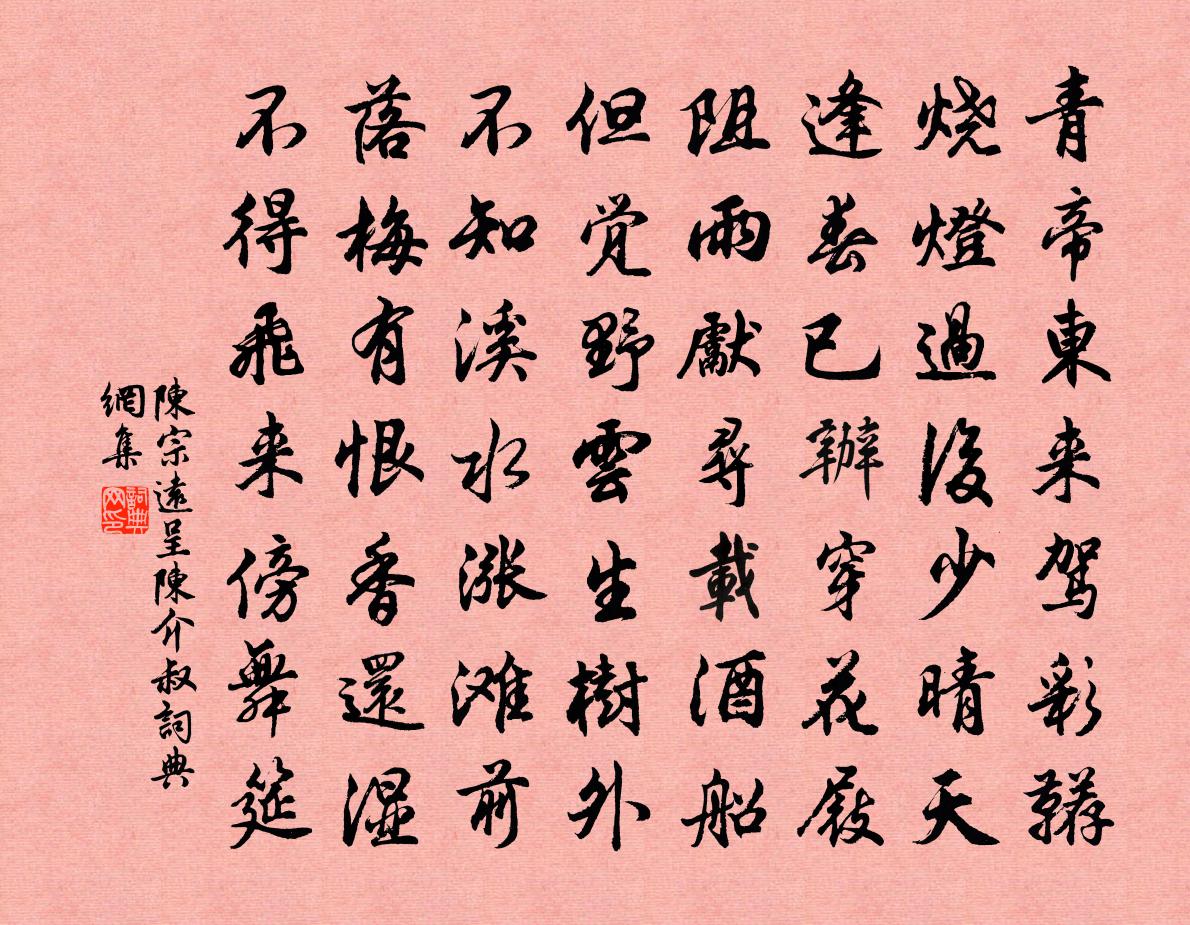 青帝東来駕彩鞯
烧燈過後少晴天
逢春已辦穿花屐
阻雨獻尋載酒船
但觉野雲生樹外
不知溪水漲滩前
落梅有恨香還湿
不得飛来傍舞筵
陳宗遠呈陳介叔詞典
網集
詞典
网印